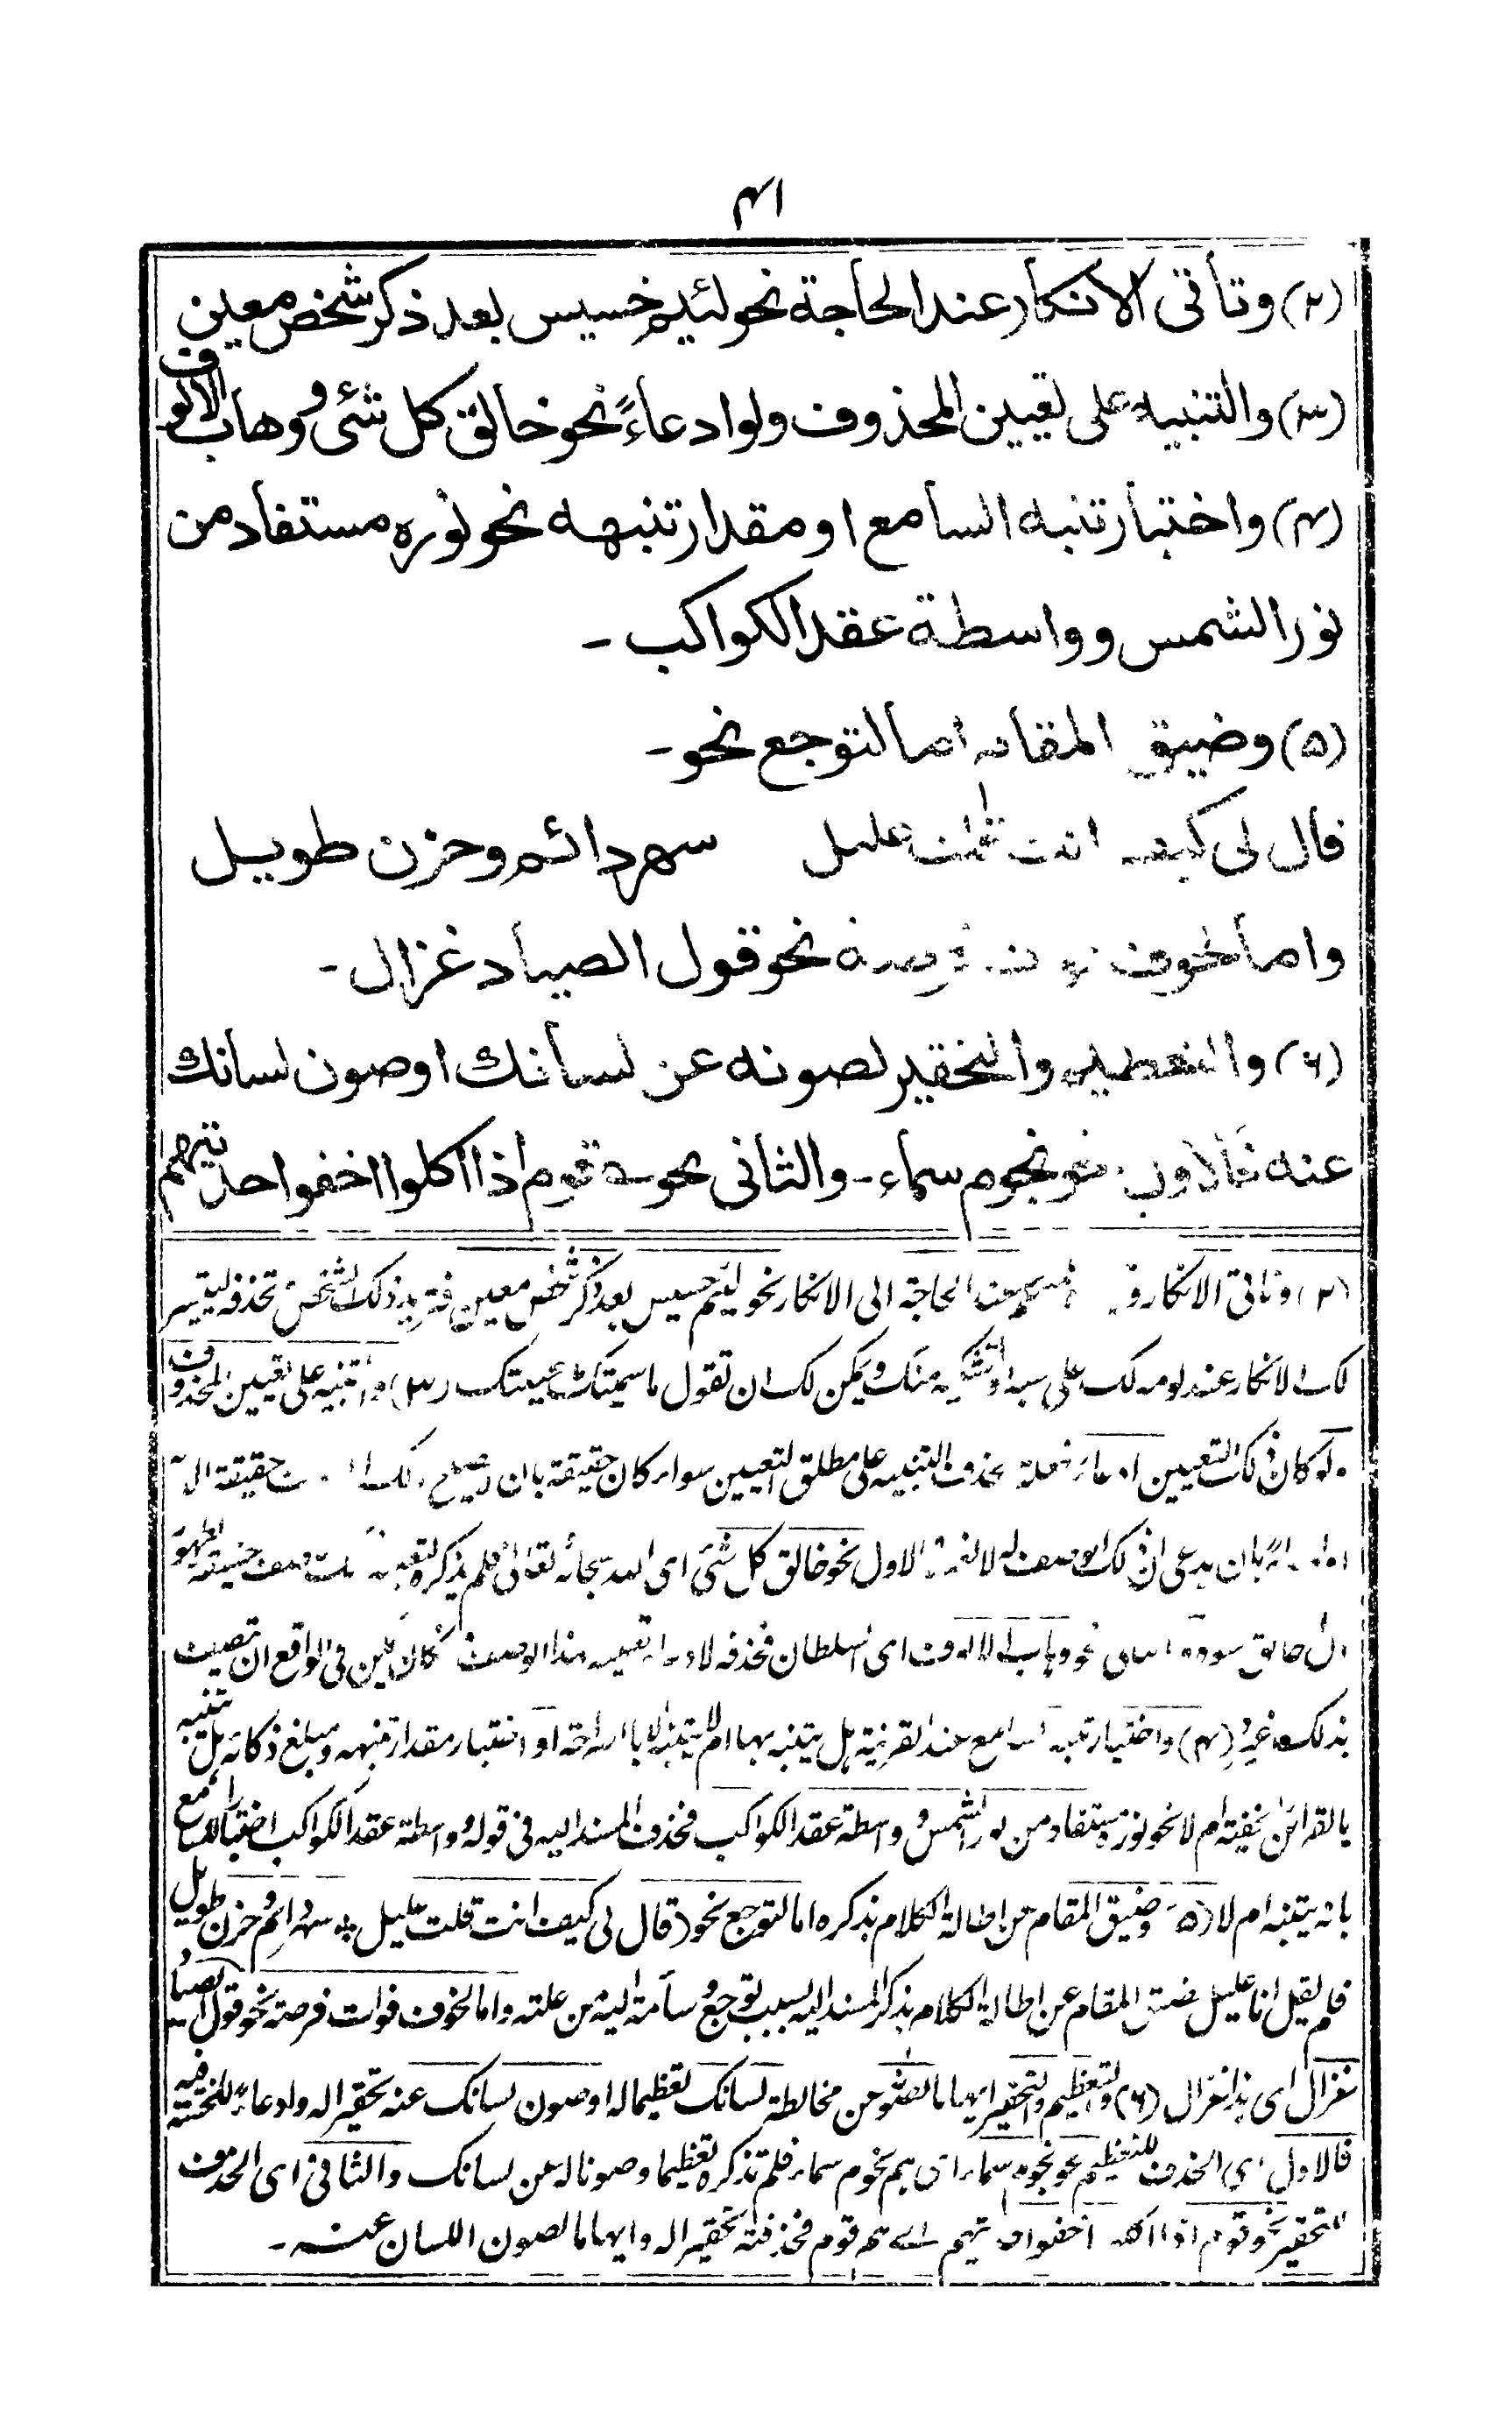 ۴۱
(۲) وتأتی الانکار عند الحاجة نحو لئیم خسیس بعد ذکر شخص معین
(۳) والتنبیه علی تعیین المحذوف ولو ادعاءً نحو خالق کل شئ و وهاب الالوف
(۴) واختبار تنبه السامع او مقدار تنبهه نحو نوره مستفاد من
نور الشمس وواسطة عقد الکواکب ۔
(۵) وضیق المقام اما لتوجع نحو ۔
قال لی کیف انت قلت علیل سهر دائم وحزن طویل
واما لخوف فرصة نحو قول الصیاد غزال ۔
(۶) والتعظیم والتحقیر لصونه عن لسانك او صون لسانك
عنه فالاول نحو نجوم سماء ۔ والثانی نحو قوم اذا اکلوا اخفوا حدیثهم
(۲) وتاتی الانکار عند الحاجة الی الانکار نحو لئیم خسیس بعد ذکر شخص معین ذلک الشخص تحذفه لیتیسر
لک الانکار عند لومه لک علی منک ویمکن لک ان تقول ما سمیتک (۳) والتنبیه علی تعیین المحذوف
ولو کان ذلک التعیین ادعاء بحذف التنبیه علی مطلق التعیین سواء کان حقیقة بان حقیقة الا
بان یدعی ان ذلک الوصف الا له الاول نحو خالق کل شئ ای الله سبحانه تعالی فلم یذکره
نحو وهاب الالوف ای السلطان فحذفه هذا الوصف فی الواقع ان یتصف
بذلک غیره (۴) واختبار تنبه السامع عند القرینة هل یتنبه بها ام لا یتنبه الا بالصراحة او اختبار مقدار تنبهه ومبلغ ذکائه هل یتنبه
بالقرائن الخفیة ام لا نحو نوره مستفاد من نور الشمس وواسطة عقد الکواکب فحذف المسند الیه فی قوله وواسطة عقد الکواکب اختبارا للسامع
بانه یتنبه ام لا (۵) وضیق المقام عن اطالة الکلام بذکره اما لتوجع نحو (قال لی کیف انت قلت علیل ؞ سهر دائم وحزن طویل
فلم یقل انا علیل لضیق المقام عن اطالة الکلام بذکر المسند الیه بسبب توجع وسآمة له من علته واما لخوف فوات فرصة نحو قول الصیاد
غزال ای هذا غزال (۶) والتعظیم والتحقیر ایهاما لصونه عن مخالطة لسانک تعظیما له او صون لسانک عنه تحقیرا له
فالاول ای الحذف للتعظیم نحو نجوم سماء ای هم نجوم سماء فلم تذکره تعظیما وصونا له عن لسانک والثانی ای الحذف
للتحقیر نحو قوم اذا اکلوا اخفوا حدیثهم ای هم قوم فحذفته تحقیرا له وایهاما لصون اللسان عنه ۔